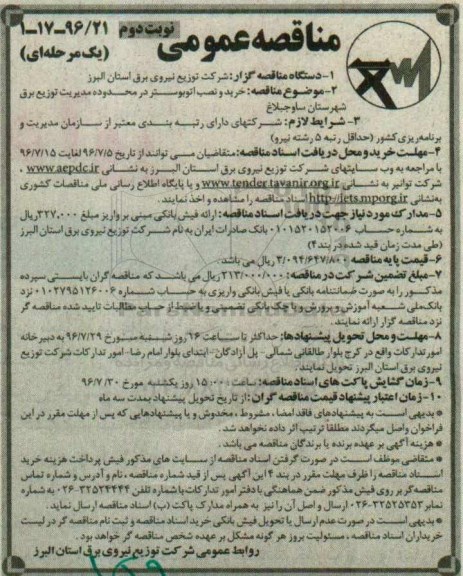 مناقصه عمومی
نوبت دوم
۹۶/۲۱-۱۷-۱
(یک مرحله‌ای)
۱-دستگاه مناقصه گزار: شرکت توزیع نیروی برق استان البرز
۲-موضوع مناقصه: خرید و نصب اتوبوستر در محدوده مدیریت توزیع برق
شهرستان ساوجبلاغ
۳-شرایط لازم: شرکتهای دارای رتبه بندی معتبر از سازمان مدیریت و
برنامه‌ریزی کشور (حداقل رتبه ۵ رشته نیرو)
۴-مهلت خرید و محل دریافت اسناد مناقصه: متقاضیان می توانند از تاریخ ۹۶/۷/۵ لغایت ۹۶/۷/۱۵
با مراجعه به وب سایتهای شرکت توزیع نیروی برق استان البرز به نشانی www.aepdc.ir ،
شرکت توانیر به نشانی www.tender.tavanir.org.ir و یا پایگاه اطلاع رسانی ملی مناقصات کشوری
به‌نشانی http://iets.mporg.ir اسناد مناقصه را مشاهده و اخذ نمایند.
۵-مدارک مورد نیاز جهت دریافت اسناد مناقصه: ارائه فیش بانکی مبنی بر واریز مبلغ ۳۲۷,۰۰۰ ریال
به شماره حساب ۰۱۰۱۵۲۰۱۵۲۰۰۶ بانک صادرات ایران به نام شرکت توزیع نیروی برق استان البرز
(طی مدت زمان قید شده در بند ۴)
۶-قیمت پایه مناقصه ۳/۰۹۴/۶۴۷/۸۰۰ ریال می باشد.
۷-مبلغ تضمین شرکت در مناقصه: ۲۱۳/۰۰۰/۰۰۰ ریال می باشد که مناقصه گران بایستی سپرده
مذکور را به صورت ضمانتنامه بانکی یا فیش بانکی واریزی به حساب شماره ۰۱۰۲۷۹۵۱۲۶۰۰۶ نزد
بانک ملی شعبه آموزش و پرورش و یا چک بانکی تضمینی و یا ضبط از حساب مطالبات تایید شده مناقصه گر
نزد مناقصه گزار ارائه نمایند.
۸-مهلت و محل تحویل پیشنهادها: حداکثر تا ساعت ۱۶ روز شنبه مورخ ۹۶/۷/۲۹ به دبیرخانه
امور تدارکات واقع در کرج بلوار طالقانی شمالی- پل آزادگان- ابتدای بلوار امام رضا- امور تدارکات شرکت توزیع
نیروی برق استان البرز تحویل نمایند.
۹-زمان گشایش پاکت های اسناد مناقصه: ساعت ۱۵:۰۰ روز یکشنبه مورخ ۹۶/۷/۳۰
۱۰-زمان اعتبار پیشنهاد قیمت مناقصه گران: از تاریخ تحویل پیشنهاد بمدت سه ماه
* بدیهی است به پیشنهادهای فاقد امضاء، مشروط، مخدوش و یا پیشنهادهایی که پس از مهلت مقرر در این
فراخوان واصل میگردند مطلقا ترتیب اثر داده نخواهد شد.
* هزینه آگهی بر عهده برنده یا برندگان مناقصه می باشد.
* متقاضی موظف است در صورت گرفتن اسناد مناقصه از سایت های مذکور فیش پرداخت هزینه خرید
اسناد مناقصه را ظرف مهلت مقرر در بند ۴ این آگهی پس از قید شماره مناقصه، نام و آدرس و شماره تماس
مناقصه گر بر روی فیش مذکور ضمن هماهنگی با دفتر امور تدارکات با شماره تلفن ۳۲۵۲۴۴۴۴-۰۲۶ به شماره
نمابر ۳۲۵۲۵۳۵۳-۰۲۶ ارسال و اصل آن را نیز به همراه مدارک پاکت (ب) اسناد مناقصه ارسال نماید.
* بدیهی است در صورت عدم ارسال یا تحویل فیش بانکی خرید اسناد مناقصه و ثبت نام مناقصه گر در لیست
خریداران اسناد مناقصه، مسئولیت بروز هر گونه مشکل بر عهده شخص مناقصه گر خواهد بود.
روابط عمومی شرکت توزیع نیروی برق استان البرز